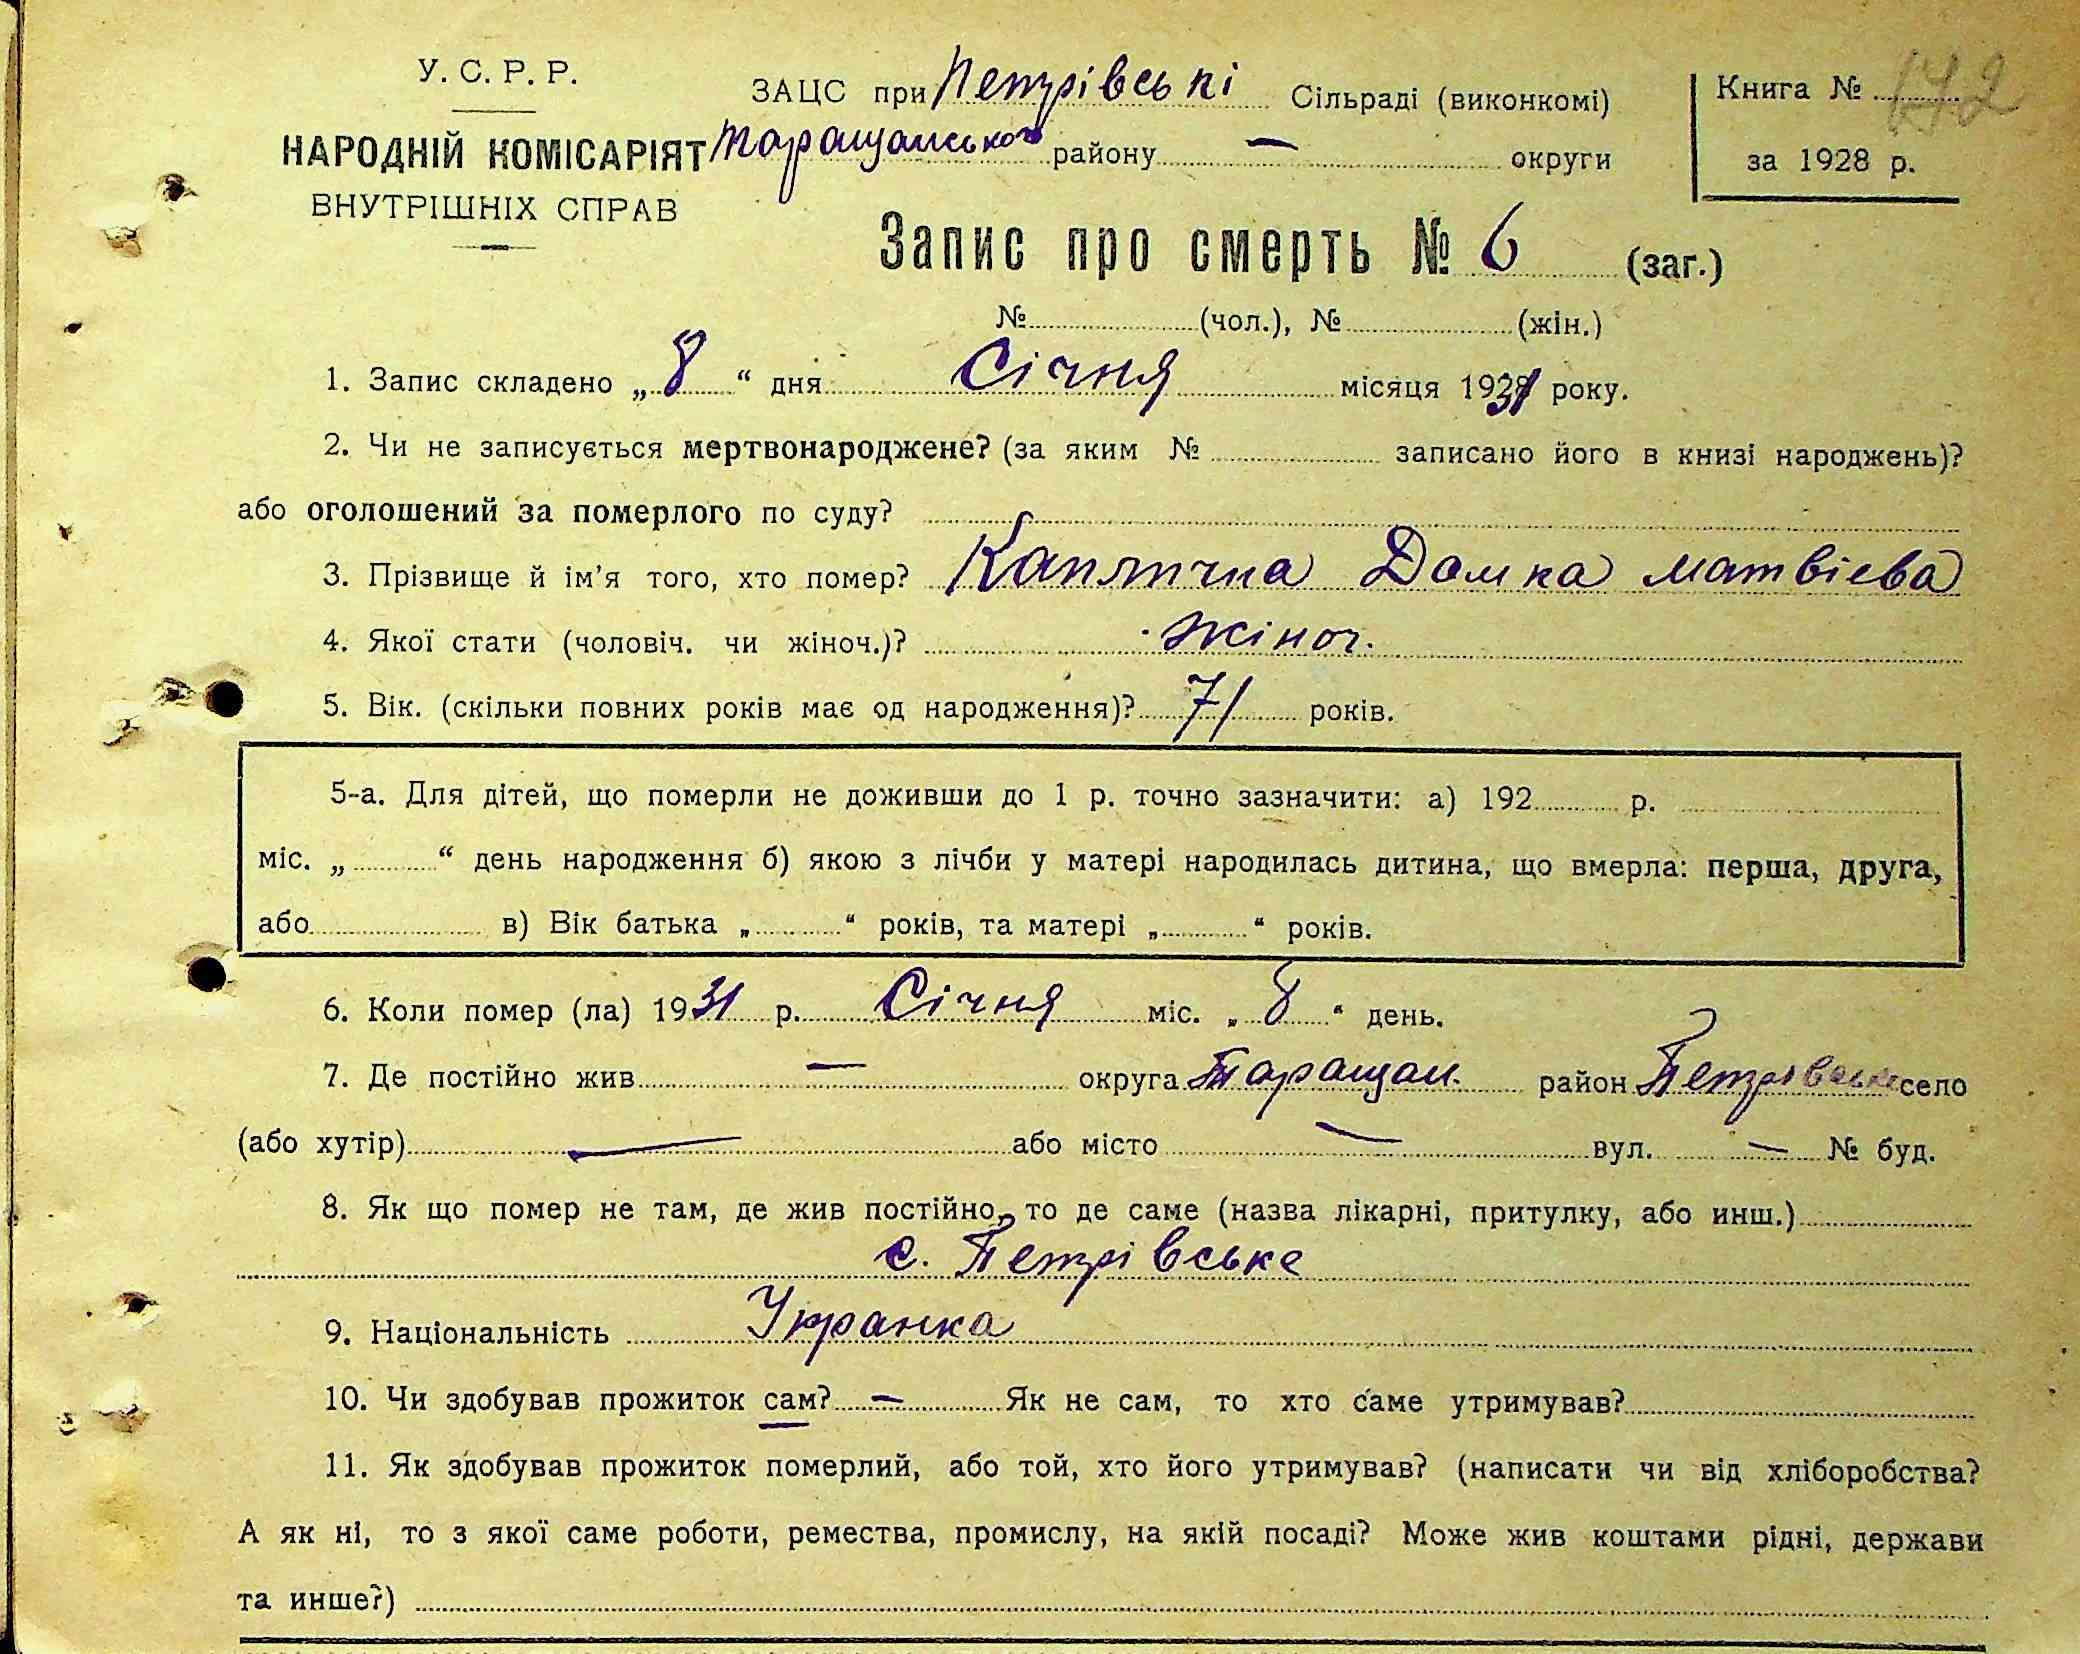 У. С. Р. Р.
НАРОДНІЙ КОМІСАРІЯТ
ВНУТРІШНІХ СПРАВ
ЗАЦС при Петрівські Сільраді (виконкомі)
Таращанського району — округи
Книга № 172
за 1928 р.
Запис про смерть № 6 (заг.)
№ (чол.), № (жін.)
1. Запис складено „ 8 “ дня Січня місяця 1931 року.
2. Чи не записується мертвонароджене? (за яким № записано його в книзі народжень)?
або оголошений за померлого по суду?
3. Прізвище й ім'я того, хто помер? Каплична Домка Матвієва
4. Якої стати (чоловіч. чи жіноч.)? жіноч.
5. Вік. (скільки повних років має од народження)? 71 років.
5-а. Для дітей, що померли не доживши до 1 р. точно зазначити: а) 192 р.
міс. „ “ день народження б) якою з лічби у матері народилась дитина, що вмерла: перша, друга,
або в) Вік батька „ “ років, та матері „ “ років.
6. Коли помер (ла) 1931 р. Січня міс. „ 8 “ день.
7. Де постійно жив — округа Таращан. район Петрівське село
(або хутір) — або місто — вул. — № буд.
8. Як що помер не там, де жив постійно, то де саме (назва лікарні, притулку, або инш.)
с. Петрівське
9. Національність Укранка
10. Чи здобував прожиток сам? — Як не сам, то хто саме утримував?
11. Як здобував прожиток померлий, або той, хто його утримував? (написати чи від хліборобства?
А як ні, то з якої саме роботи, ремества, промислу, на якій посаді? Може жив коштами рідні, держави
та инше?)